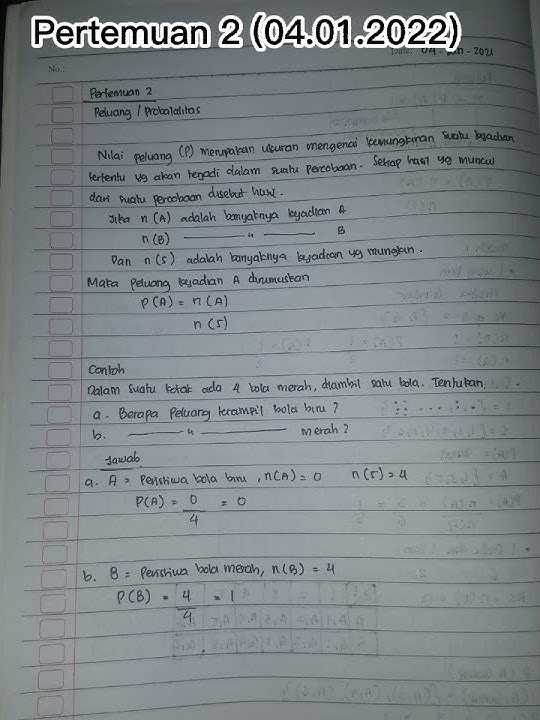 Pertemuan 2 (04.01.2022)
Date: 04 - Jan - 2021
No.:
Pertemuan 2
Peluang / Probabalitas
Nilai peluang (P) merupakan ukuran mengenai kemungkinan suatu kejadian
tertentu yg akan terjadi dalam suatu percobaan. Setiap hasil yg muncul
dari suatu percobaan disebut hasil.
Jika n (A) adalah banyaknya kejadian A
n (B) —— " —— B
Dan n (S) adalah banyaknya kejadian yg mungkin.
Maka Peluang kejadian A dirumuskan
P (A) = n (A)
n (S)
Contoh
Dalam suatu kotak ada 4 bola merah, diambil satu bola. Tentukan,
a. Berapa Peluang terampil bola biru ?
b. —— " —— merah ?
Jawab
a. A = Peristiwa bola biru , n(A) = 0 n (S) = 4
P(A) = 0 = 0
4
b. B = Peristiwa bola merah, n (B) = 4
P (B) = 4 = 1
4